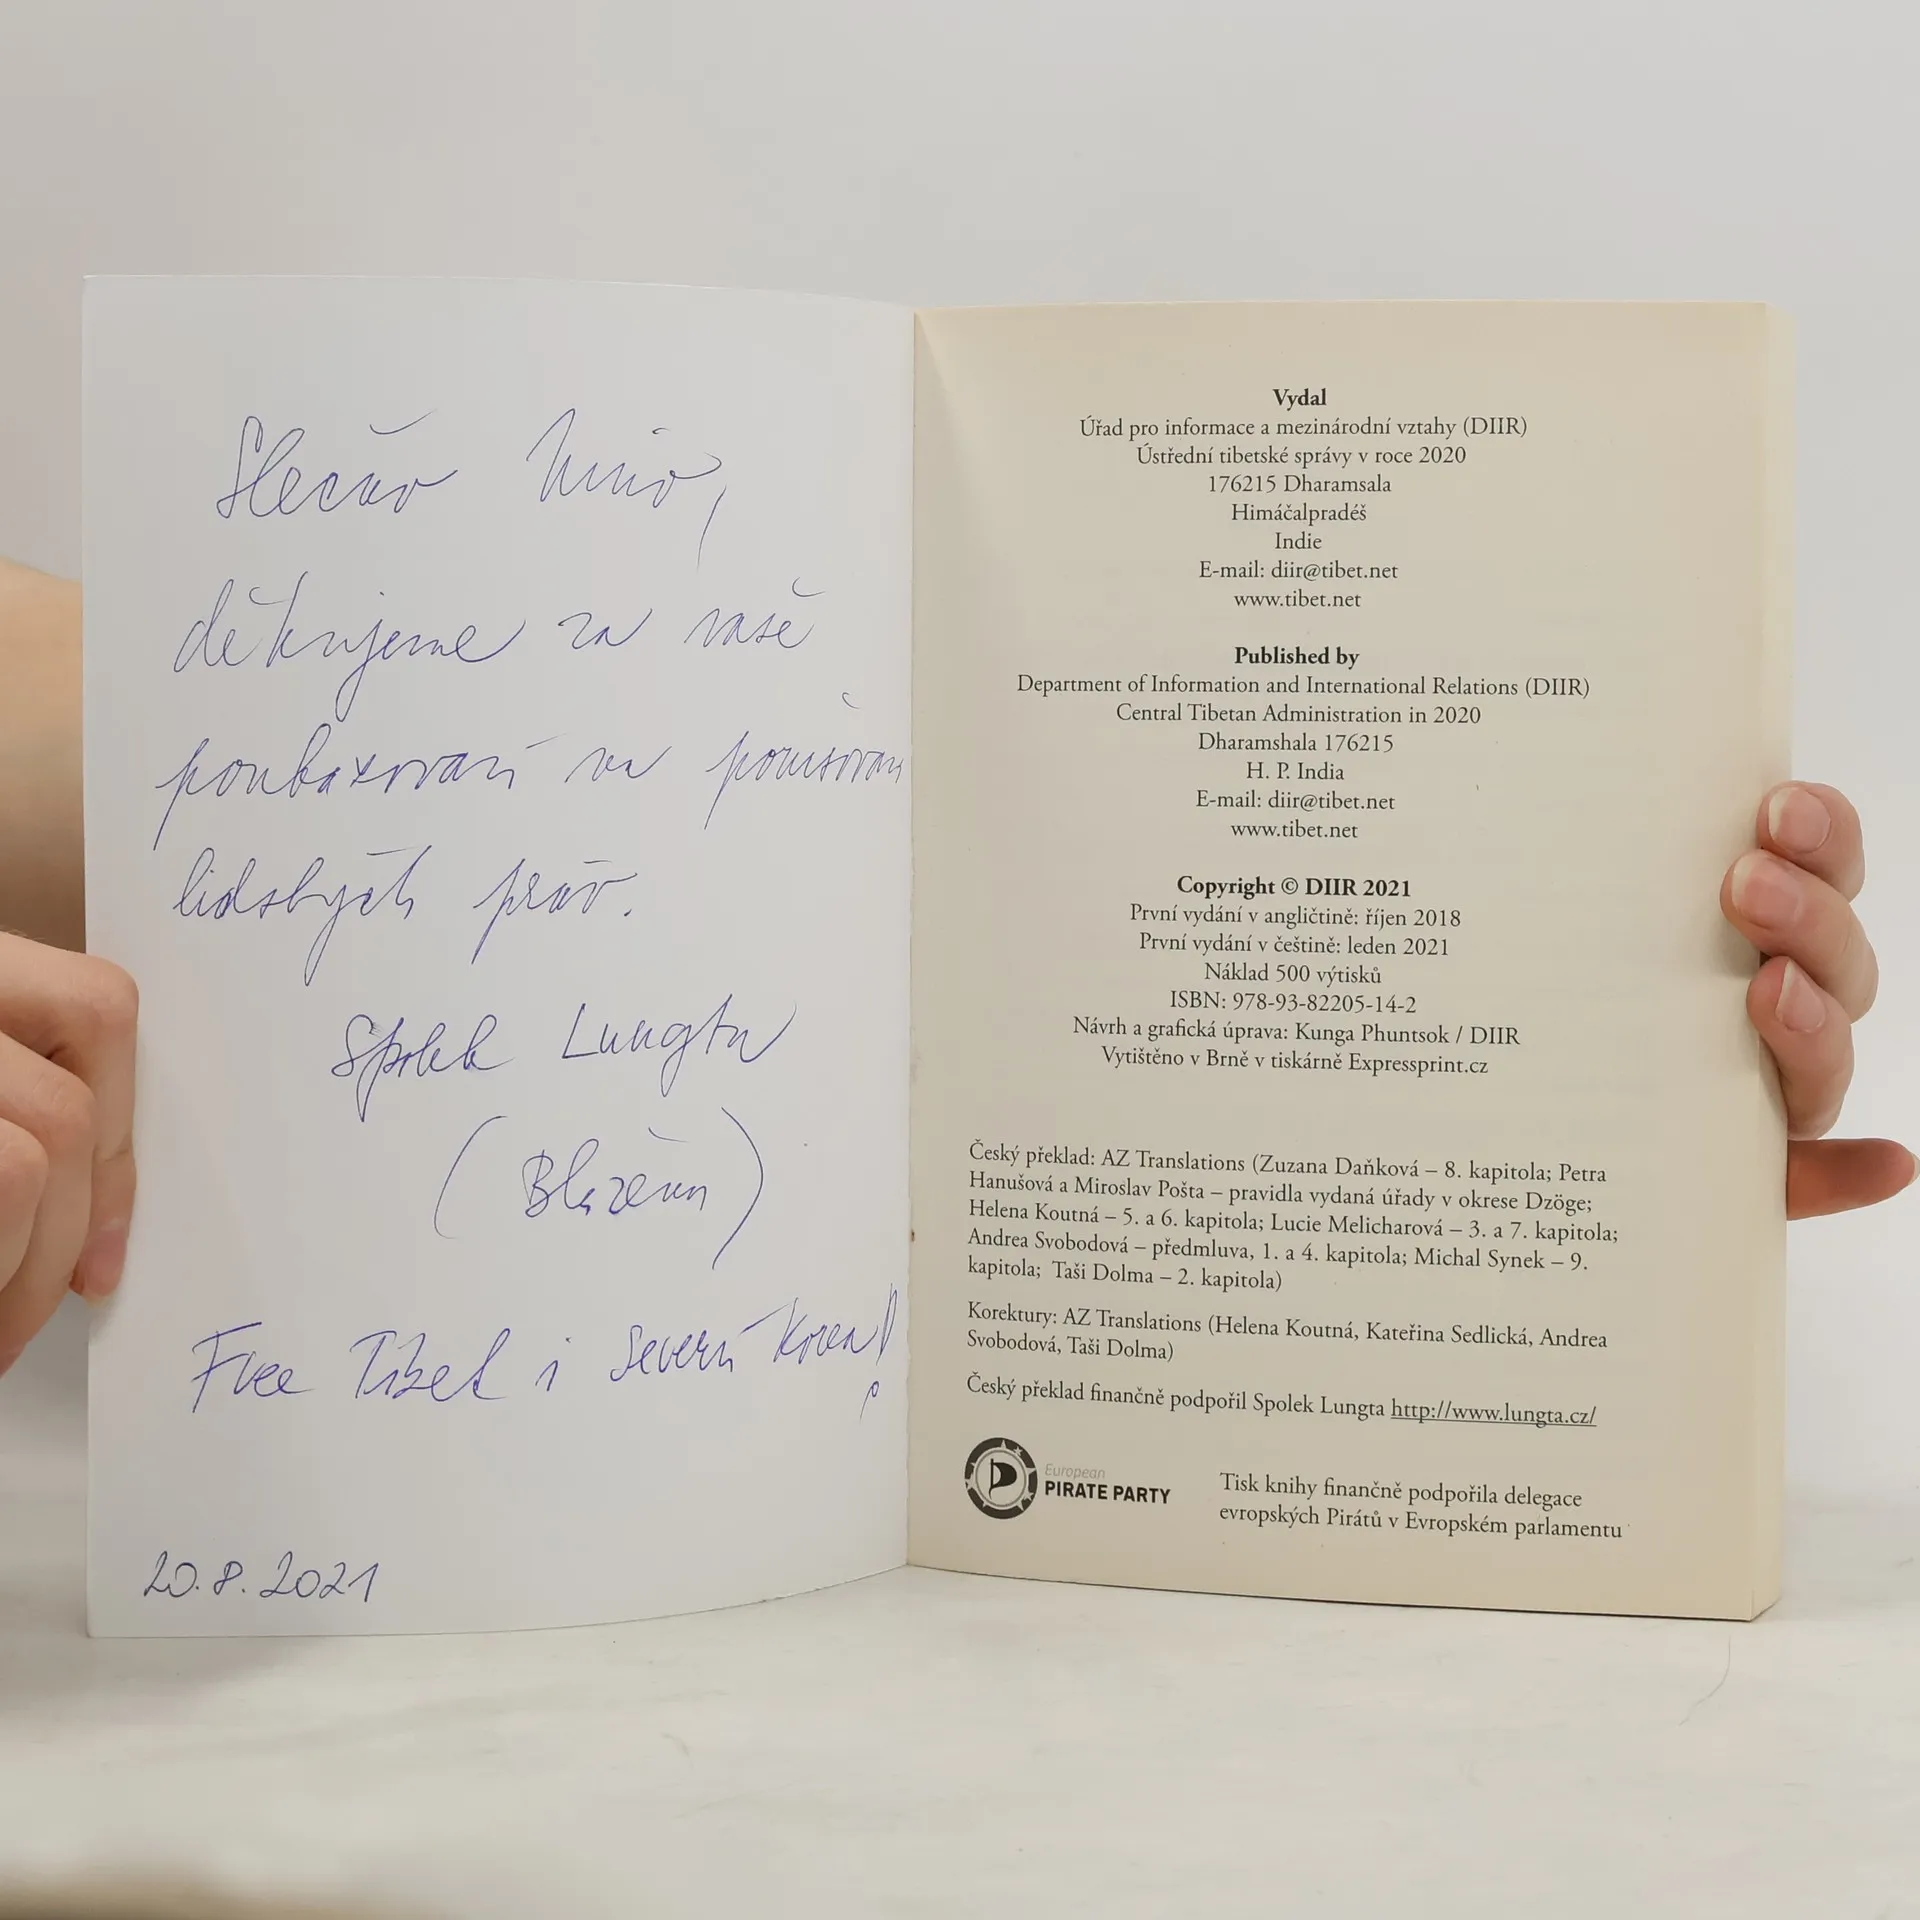 děkujeme za vaše
poukazování na porušování
lidských práv.
Spolek Lungta
(Blažena)
Free Tibet i Severní Korea!
20.8.2021
Vydal
Úřad pro informace a mezinárodní vztahy (DIIR)
Ústřední tibetské správy v roce 2020
176215 Dharamsala
Himáčalpradéš
Indie
E-mail: diir@tibet.net
www.tibet.net
Published by
Department of Information and International Relations (DIIR)
Central Tibetan Administration in 2020
Dharamshala 176215
H. P. India
E-mail: diir@tibet.net
www.tibet.net
Copyright © DIIR 2021
První vydání v angličtině: říjen 2018
První vydání v češtině: leden 2021
Náklad 500 výtisků
ISBN: 978-93-82205-14-2
Návrh a grafická úprava: Kunga Phuntsok / DIIR
Vytištěno v Brně v tiskárně Expressprint.cz
Český překlad: AZ Translations (Zuzana Daňková – 8. kapitola; Petra
Hanušová a Miroslav Pošta – pravidla vydaná úřady v okrese Dzöge;
Helena Koutná – 5. a 6. kapitola; Lucie Melicharová – 3. a 7. kapitola;
Andrea Svobodová – předmluva, 1. a 4. kapitola; Michal Synek – 9.
kapitola; Taši Dolma – 2. kapitola)
Korektury: AZ Translations (Helena Koutná, Kateřina Sedlická, Andrea
Svobodová, Taši Dolma)
Český překlad finančně podpořil Spolek Lungta http://www.lungta.cz/
European
PIRATE PARTY
Tisk knihy finančně podpořila delegace
evropských Pirátů v Evropském parlamentu